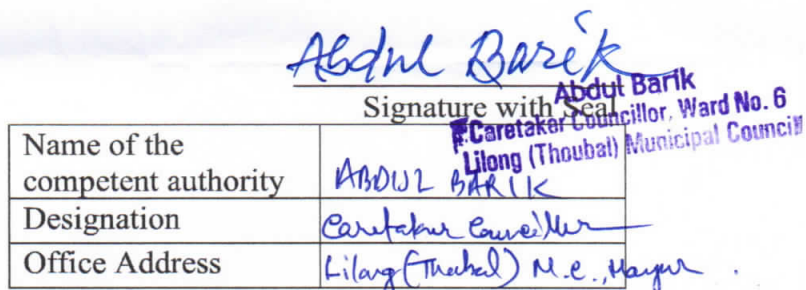 Abdul Barik
Signature with Seal
Abdut Barik
Caretaker Councillor, Ward No. 6
Lilong (Thoubal) Municipal Council
Name of the
competent authority ABDUL BARIK
Designation Caretaker Councillor
Office Address Lilong (Thoubal) M.C.,